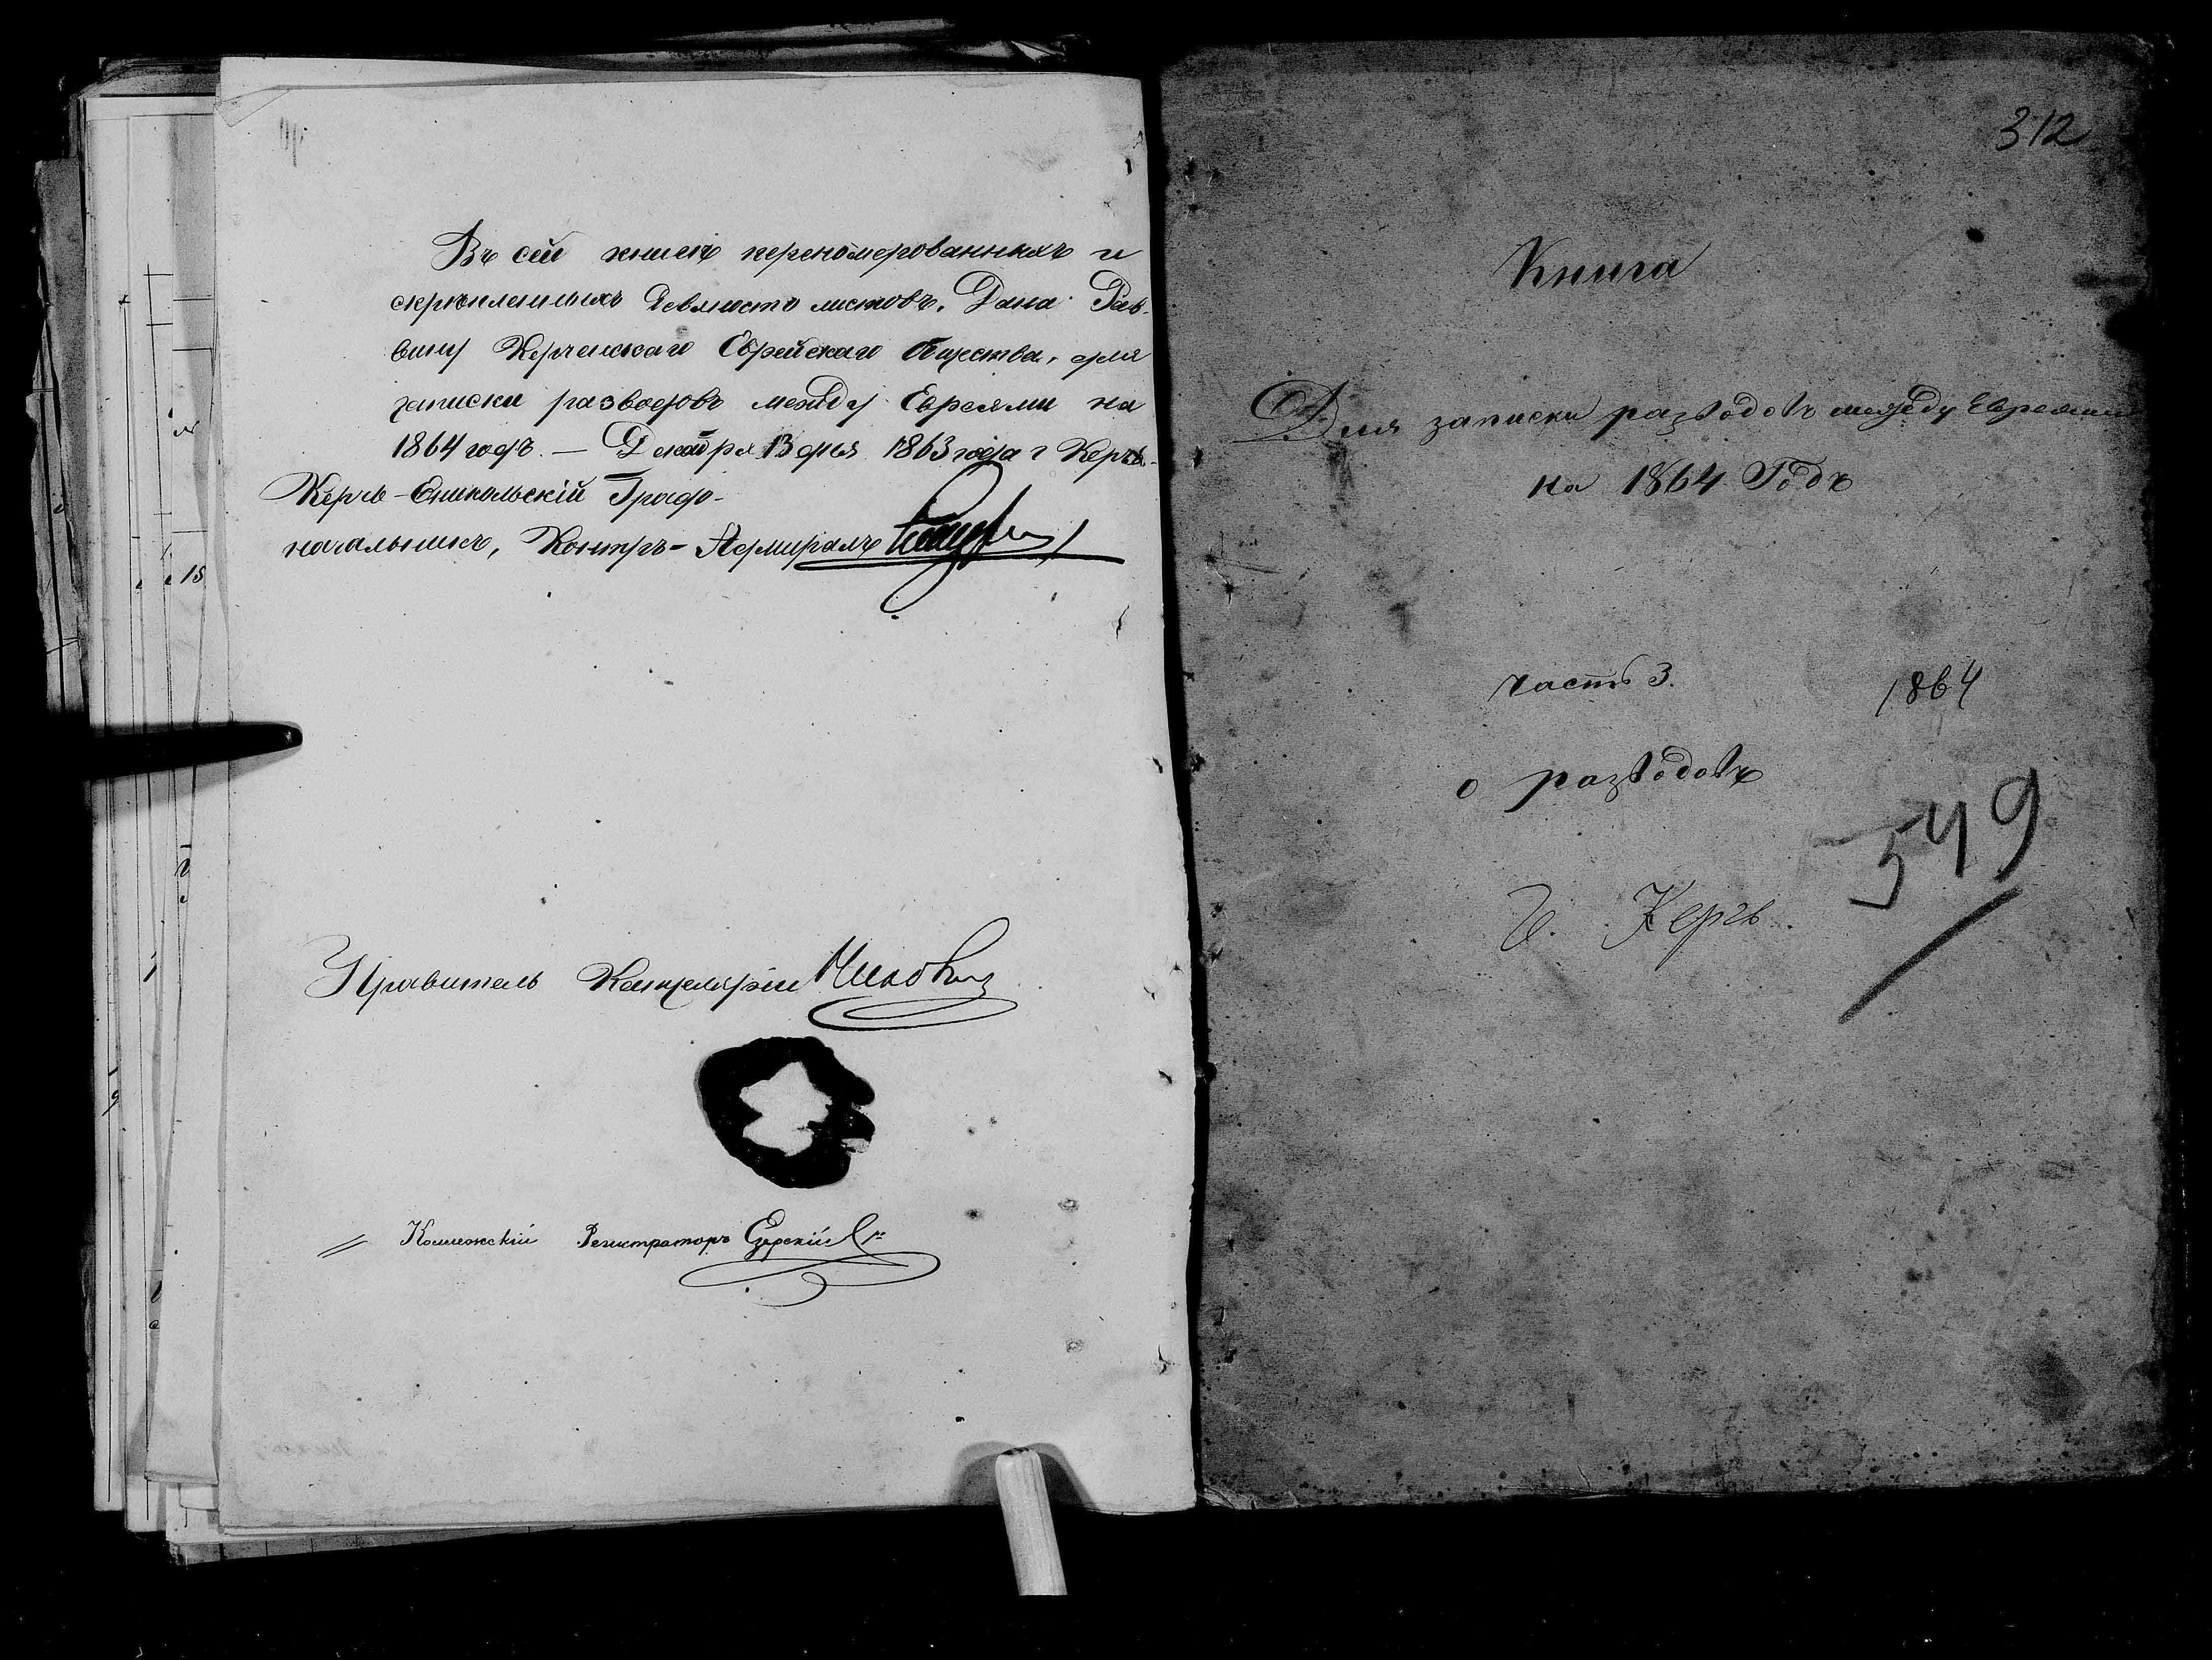 Въ сей книгѣ перенумерованныхъ и
скрѣпленныхъ Девяносто листовъ. Дана Рав-
вину Керченскаго Еврейскаго Общества, для
записки разводовъ между Евреями на
1864 годъ. — Декабря 13 дня 1863 года г Керчь.
Керчь-Еникольскій Градо-
начальникъ, Контръ-Адмиралъ
Правитель Канцеляріи
Коллежскій Регистраторъ Езерскій
312
Книга
Для записки разводовъ между Евреями
на 1864 Годъ
Часть 3. 1864
о разводовъ
549
г. Керчь.